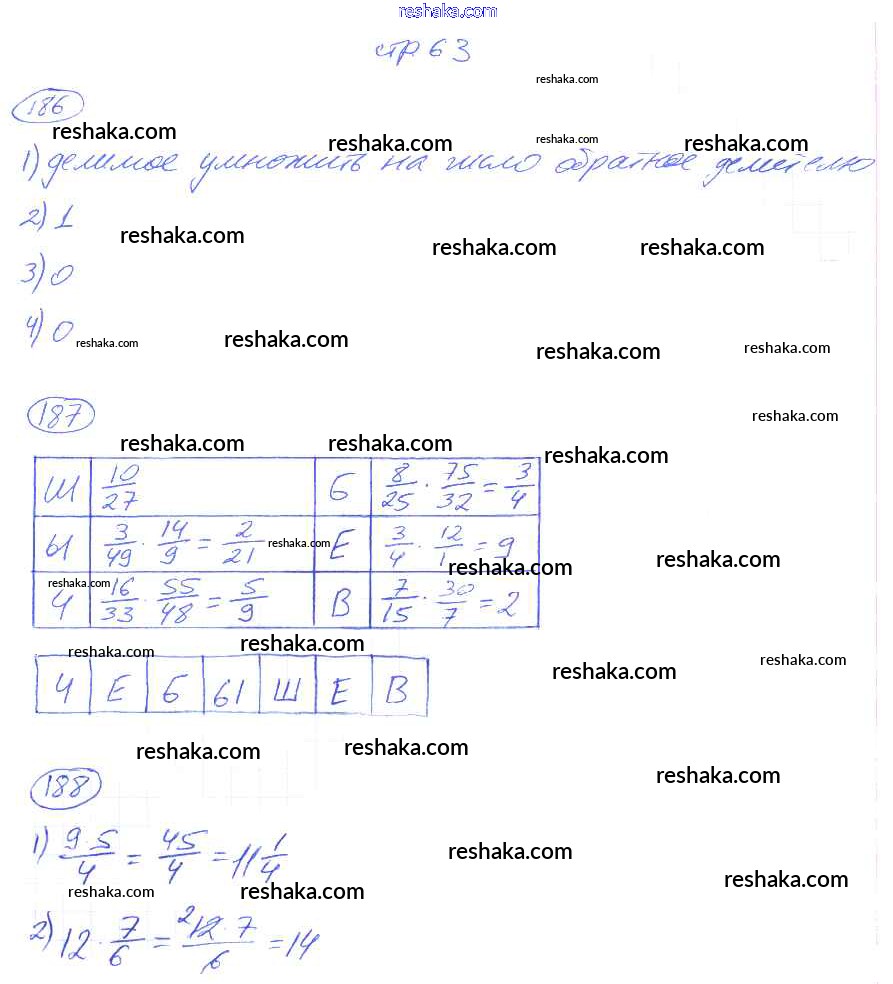 reshaka.com
стр 63
reshaka.com
186
reshaka.com
reshaka.com reshaka.com reshaka.com
1) делимое умножить на число обратное делителю
2) 1
reshaka.com reshaka.com reshaka.com
3) 0
4) 0
reshaka.com reshaka.com reshaka.com reshaka.com
187
reshaka.com
reshaka.com reshaka.com reshaka.com
Ш 10/27 Б 8/25 · 75/32 = 3/4
Ы 3/49 · 14/9 = 2/21 reshaka.com Е 3/4 · 12/1 = 9
reshaka.com reshaka.com
reshaka.com
Ч 16/33 · 55/48 = 5/9 В 7/15 · 30/7 = 2
reshaka.com reshaka.com reshaka.com reshaka.com
Ч Е Б Ы Ш Е В
reshaka.com reshaka.com
188
reshaka.com
1) 9·5/4 = 45/4 = 11 1/4
reshaka.com
reshaka.com reshaka.com reshaka.com
2) 12 · 7/6 = ²12·7/6 = 14